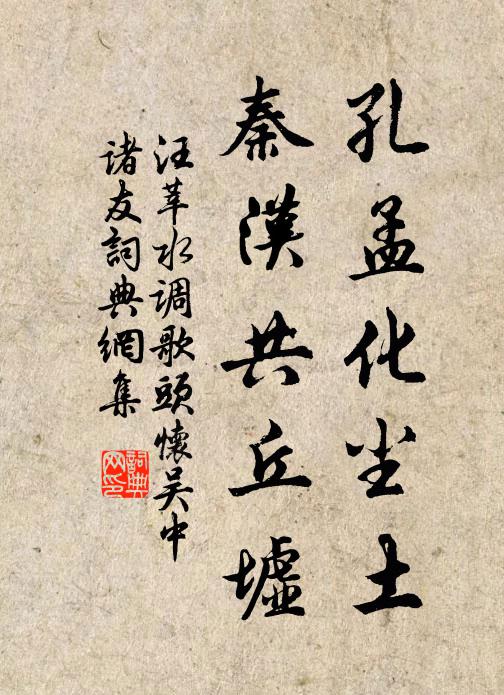 孔孟化尘土
秦漢共丘墟
汪莘水调歌頭懷吴中
諸友詞典網集
詞典
网印